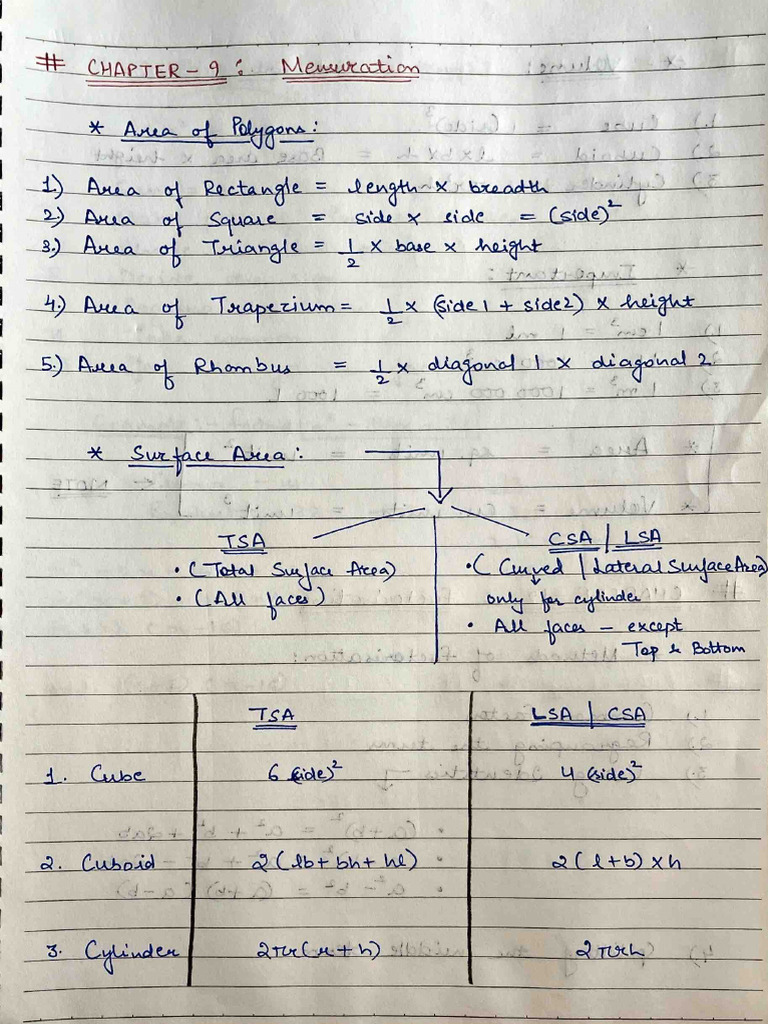 # CHAPTER - 9 : Mensuration
* Area of Polygons :
1) Area of Rectangle = length × breadth
2) Area of Square = side × side = (side)²
3.) Area of Triangle = 1/2 × base × height
4.) Area of Trapezium = 1/2 × (side 1 + side 2) × height
5.) Area of Rhombus = 1/2 × diagonal 1 × diagonal 2
* Surface Area :
TSA
• (Total Surface Area)
• (All faces)
CSA | LSA
• (Curved | Lateral Surface Area)
only for cylinder
• All faces – except
Top & Bottom
TSA LSA | CSA
1. Cube 6 (side)² 4 (side)²
2. Cuboid 2 (lb + bh + hl) 2 (l + b) × h
3. Cylinder 2πr (r + h) 2πrh